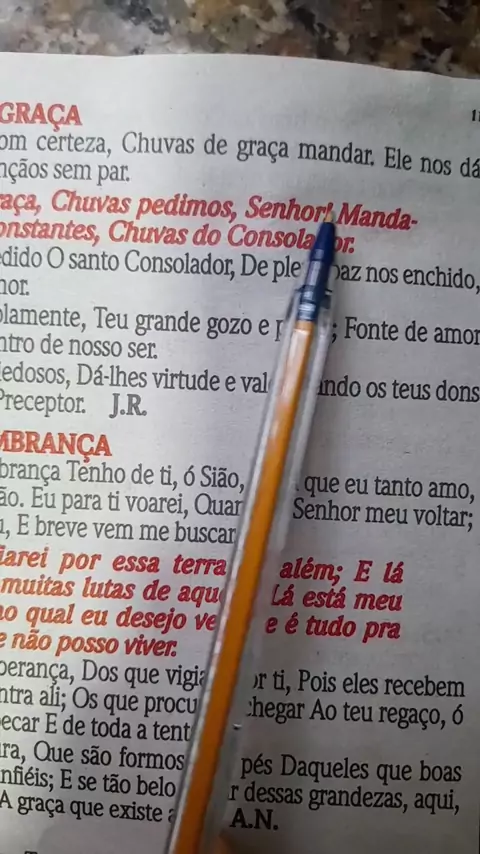 GRAÇA
om certeza, Chuvas de graça mandar. Ele nos dá
nçãos sem par.
raça, Chuvas pedimos, Senhor! Manda-
onstantes, Chuvas do Consolador.
edido O santo Consolador, De paz nos enchido,
nor.
olamente, Teu grande gozo e ; Fonte de amor
ntro de nosso ser.
iedosos, Dá-lhes virtude e os teus dons
Preceptor. J.R.
MBRANÇA
brança Tenho de ti, ó Sião, que eu tanto amo,
ão. Eu para ti voarei, Senhor meu voltar;
, E breve vem me buscar
iarei por essa terra além; E lá
muitas lutas de Lá está meu
no qual eu desejo e é tudo pra
e não posso viver.
perança, Dos que ti, Pois eles recebem
ntra ali; Os que chegar Ao teu regaço, ó
pecar E de toda a
ura, Que são formos pés Daqueles que boas
nfiéis; E se tão belo dessas grandezas, aqui,
A graça que existe A.N.